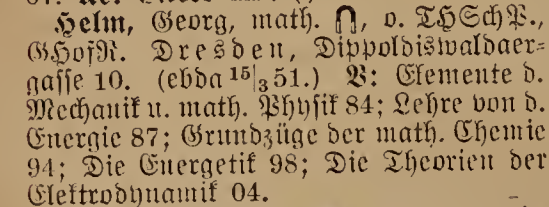 Helm, Georg, math. ⋂, o. THSchP.,
GHofR. Dresden, Dippoldiswaldaer-
gasse 10. (ebda 15/3 51.) V: Elemente d.
Mechanik u. math. Physik 84; Lehre von d.
Energie 87; Grundzüge der math. Chemie
94; Die Energetik 98; Die Theorien der
Elektrodynamik 04.